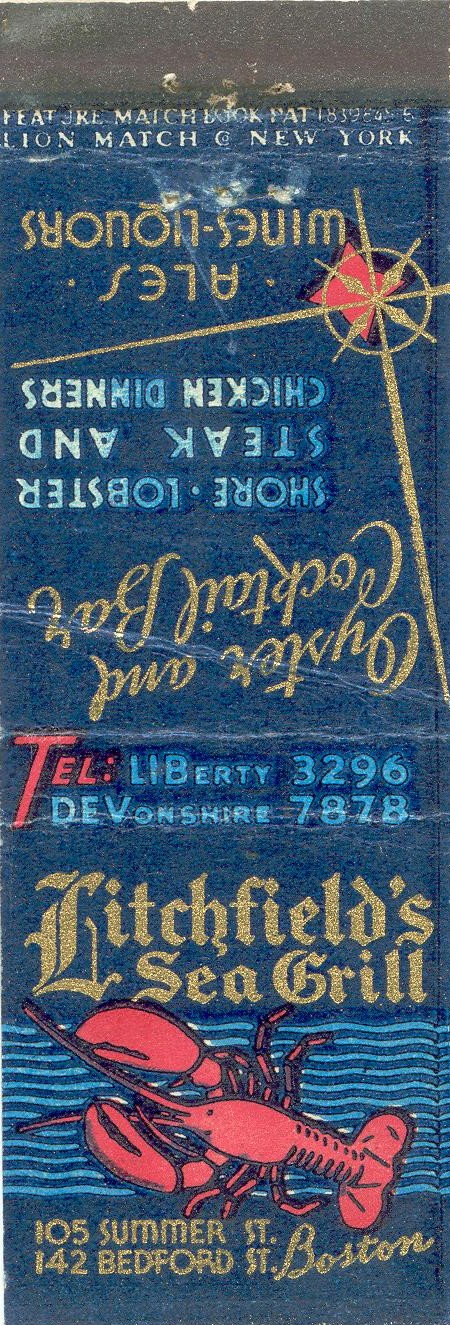 FEATURE MATCH BOOK PAT
LION MATCH Co NEW YORK
Oyster and
Cocktail Bar
SHORE · LOBSTER
STEAK AND
CHICKEN DINNERS
· ALES ·
WINES-LIQUORS
TEL: LIBERTY 3296
DEVONSHIRE 7878
Litchfield's
Sea Grill
105 SUMMER ST.
142 BEDFORD ST. Boston